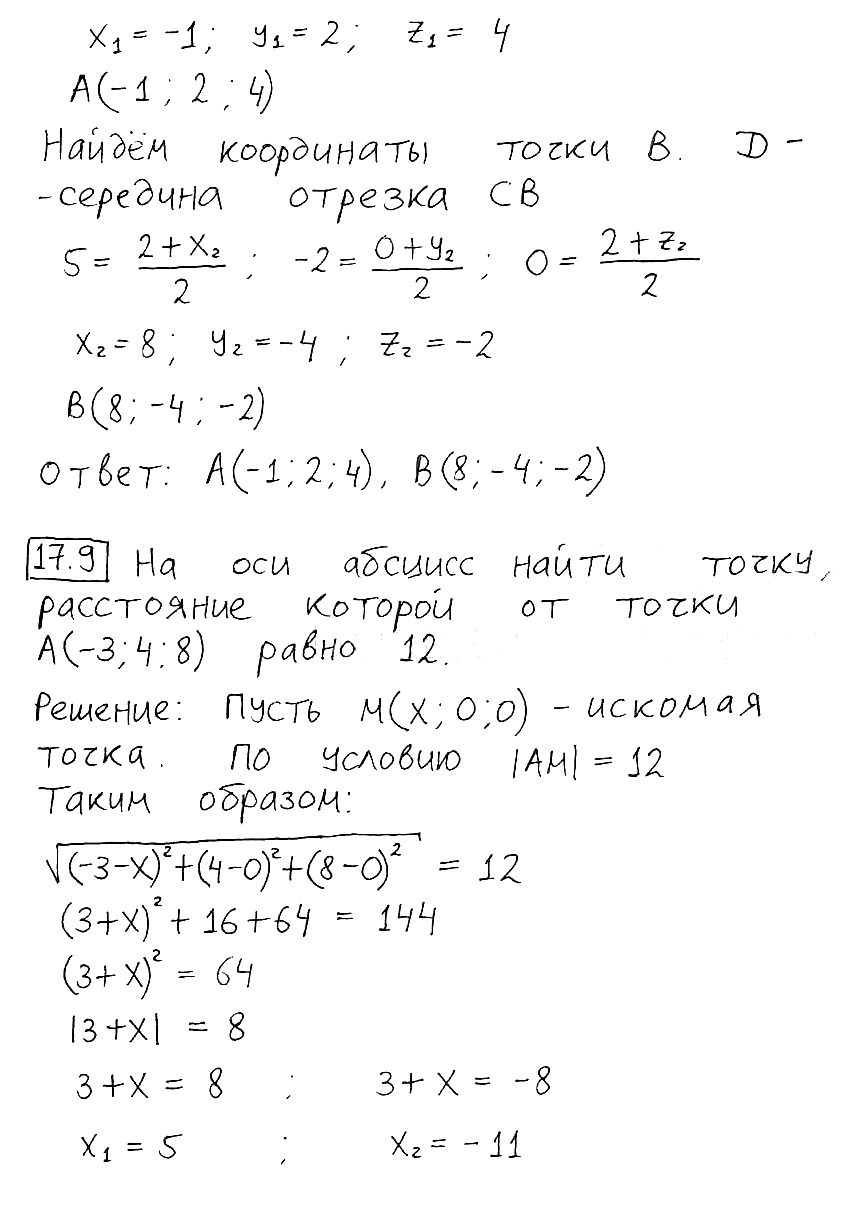 x₁ = -1; y₁ = 2; z₁ = 4
A(-1; 2; 4)
Найдём координаты точки В. D -
- середина отрезка СВ
5 = (2+x₂)/2; -2 = (0+y₂)/2; 0 = (2+z₂)/2
x₂ = 8; y₂ = -4; z₂ = -2
B(8; -4; -2)
Ответ: A(-1; 2; 4), B(8; -4; -2)
17.9 На оси абсцисс найти точку,
расстояние которой от точки
A(-3; 4; 8) равно 12.
Решение: Пусть M(x; 0; 0) - искомая
точка. По условию |AM| = 12
Таким образом:
√((-3-x)²+(4-0)²+(8-0)²) = 12
(3+x)² + 16 + 64 = 144
(3+x)² = 64
|3+x| = 8
3+x = 8 ; 3+x = -8
x₁ = 5 ; x₂ = -11